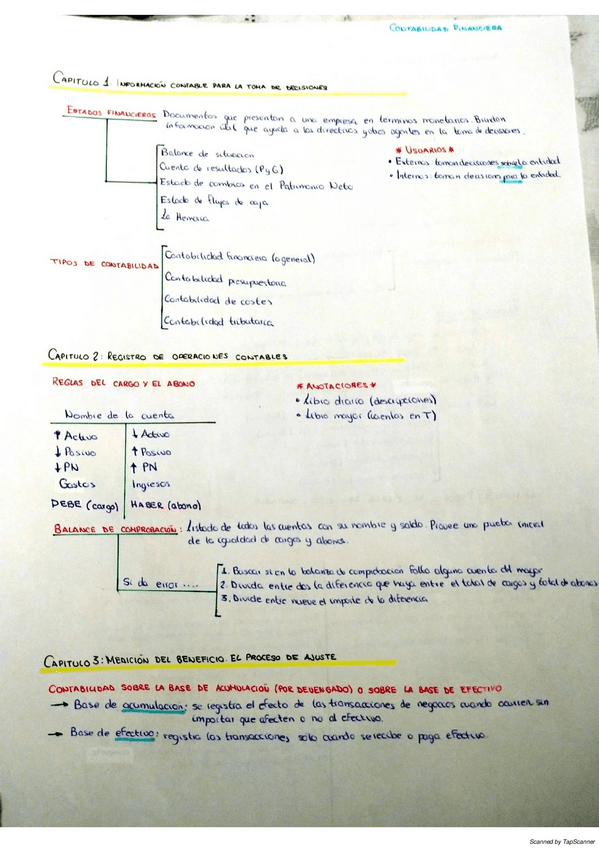 CONTABILIDAD FINANCIERA
CAPITULO 1 INFORMACIÓN CONTABLE PARA LA TOMA DE DECISIONES
ESTADOS FINANCIEROS Documentos que presentan a una empresa en terminos monetarios. Brindan
información útil que ayuda a los directivos y otros agentes en la toma de decisiones.
Balance de situacion
Cuenta de resultados (PyG)
Estado de cambios en el Patrimonio Neto
Estado de flujos de caja
La Memoria
* USUARIOS *
• Externos: toman decisiones sobre la entidad
• Internos: toman decisiones para la entidad.
TIPOS DE CONTABILIDAD
Contabilidad financiera (o general)
Contabilidad presupuestaria
Contabilidad de costes
Contabilidad tributaria
CAPITULO 2: REGISTRO DE OPERACIONES CONTABLES
REGLAS DEL CARGO Y EL ABONO
Nombre de la cuenta
↑ Activo ↓ Activo
↓ Pasivo ↑ Pasivo
↓ PN ↑ PN
Gastos Ingresos
DEBE (cargo) HABER (abono)
* ANOTACIONES *
• Libro diario (descripciones)
• Libro mayor (cuentas en T)
BALANCE DE COMPROBACIÓN: Listado de todas las cuentas con su nombre y saldo. Provee una prueba inicial
de la igualdad de cargos y abonos.
Si da error ....
1. Buscar si en la balanza de comprobacion falta alguna cuenta del mayor
2. Divida entre dos la diferencia que haya entre el total de cargos y total de abonos
3. Divide entre nueve el importe de la diferencia
CAPITULO 3: MEDICIÓN DEL BENEFICIO. EL PROCESO DE AJUSTE
CONTABILIDAD SOBRE LA BASE DE ACUMULACIÓN (POR DEVENGADO) O SOBRE LA BASE DE EFECTIVO
→ Base de acumulacion: se registra el efecto de las transacciones de negocios cuando ocurren sin
importar que afecten o no al efectivo.
→ Base de efectivo: registra las transacciones solo cuando se recibe o paga efectivo.
Scanned by TapScanner